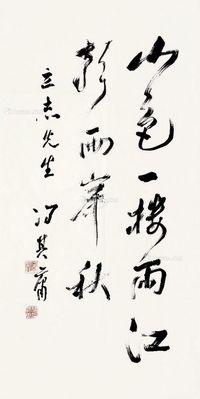 山色一楼雨江
声两岸秋
立志先生
冯其庸